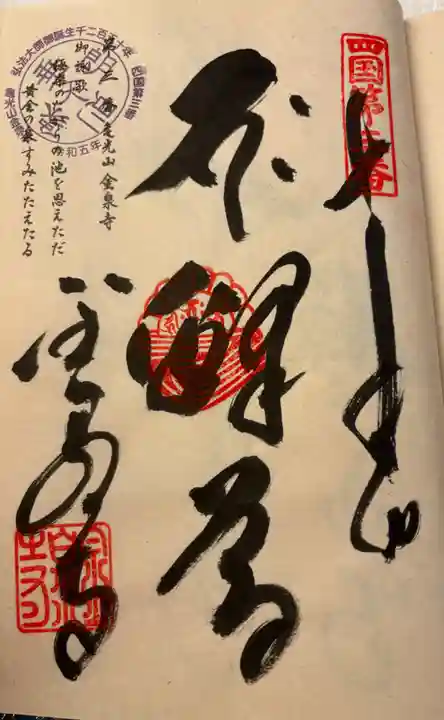 四国第三番
奉拝
釈迦尊
金泉寺
第三番 亀光山 金泉寺
御詠歌
極楽のたからの池を思えただ
黄金の泉すみたたえたる
弘法大師御誕生千二百五十年
四国第三番
令和五年
亀光山金泉寺